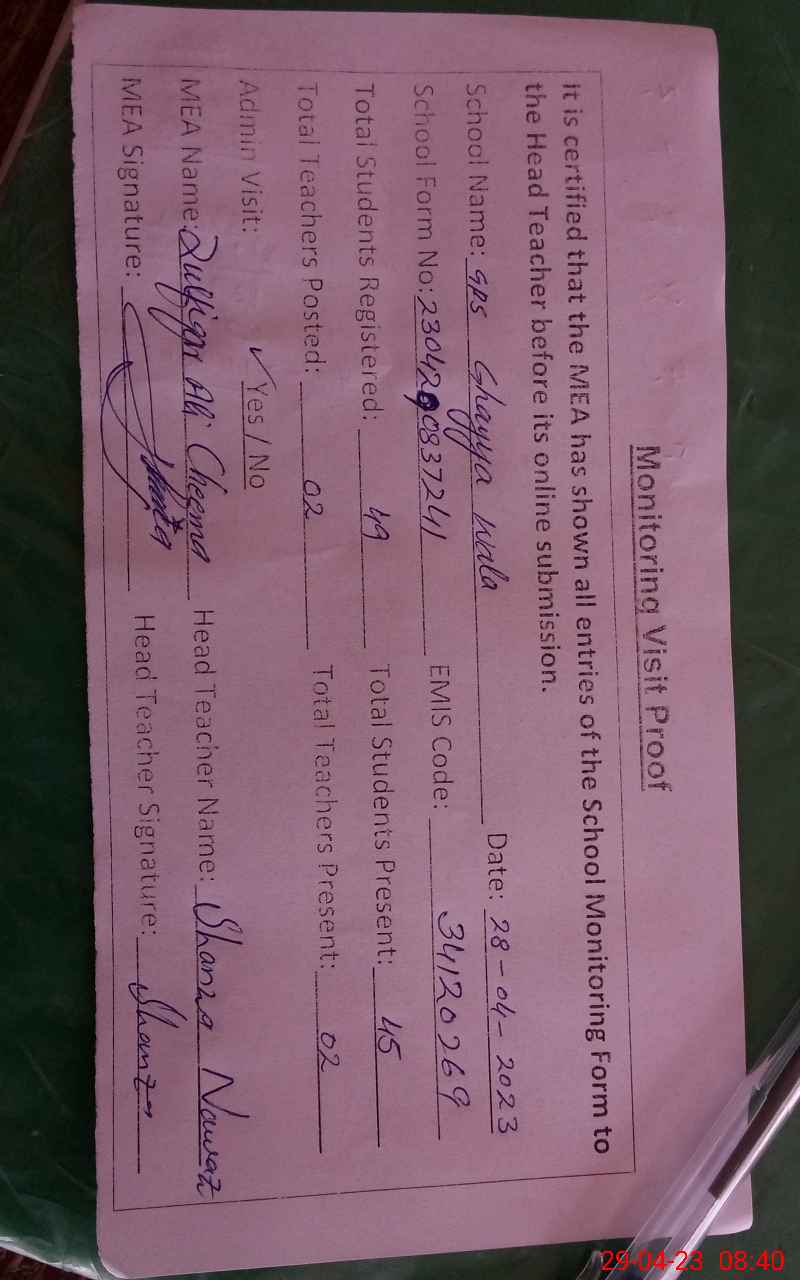 Monitoring Visit Proof
it is certified that the MEA has shown all entries of the School Monitoring Form to
the Head Teacher before its online submission.
School Name: GPS Ghayya Wala Date: 28-04-2023
School Form No: 2304290837241 EMIS Code: 34120269
Total Students Registered: 49 Total Students Present: 45
Total Teachers Posted: 02 Total Teachers Present: 02
Admin Visit: ✓ Yes / No
MEA Name: Zulfiqar Ali Cheema Head Teacher Name: Shanza Nawaz
MEA Signature: Head Teacher Signature: Shanza
29-04-23 08:40